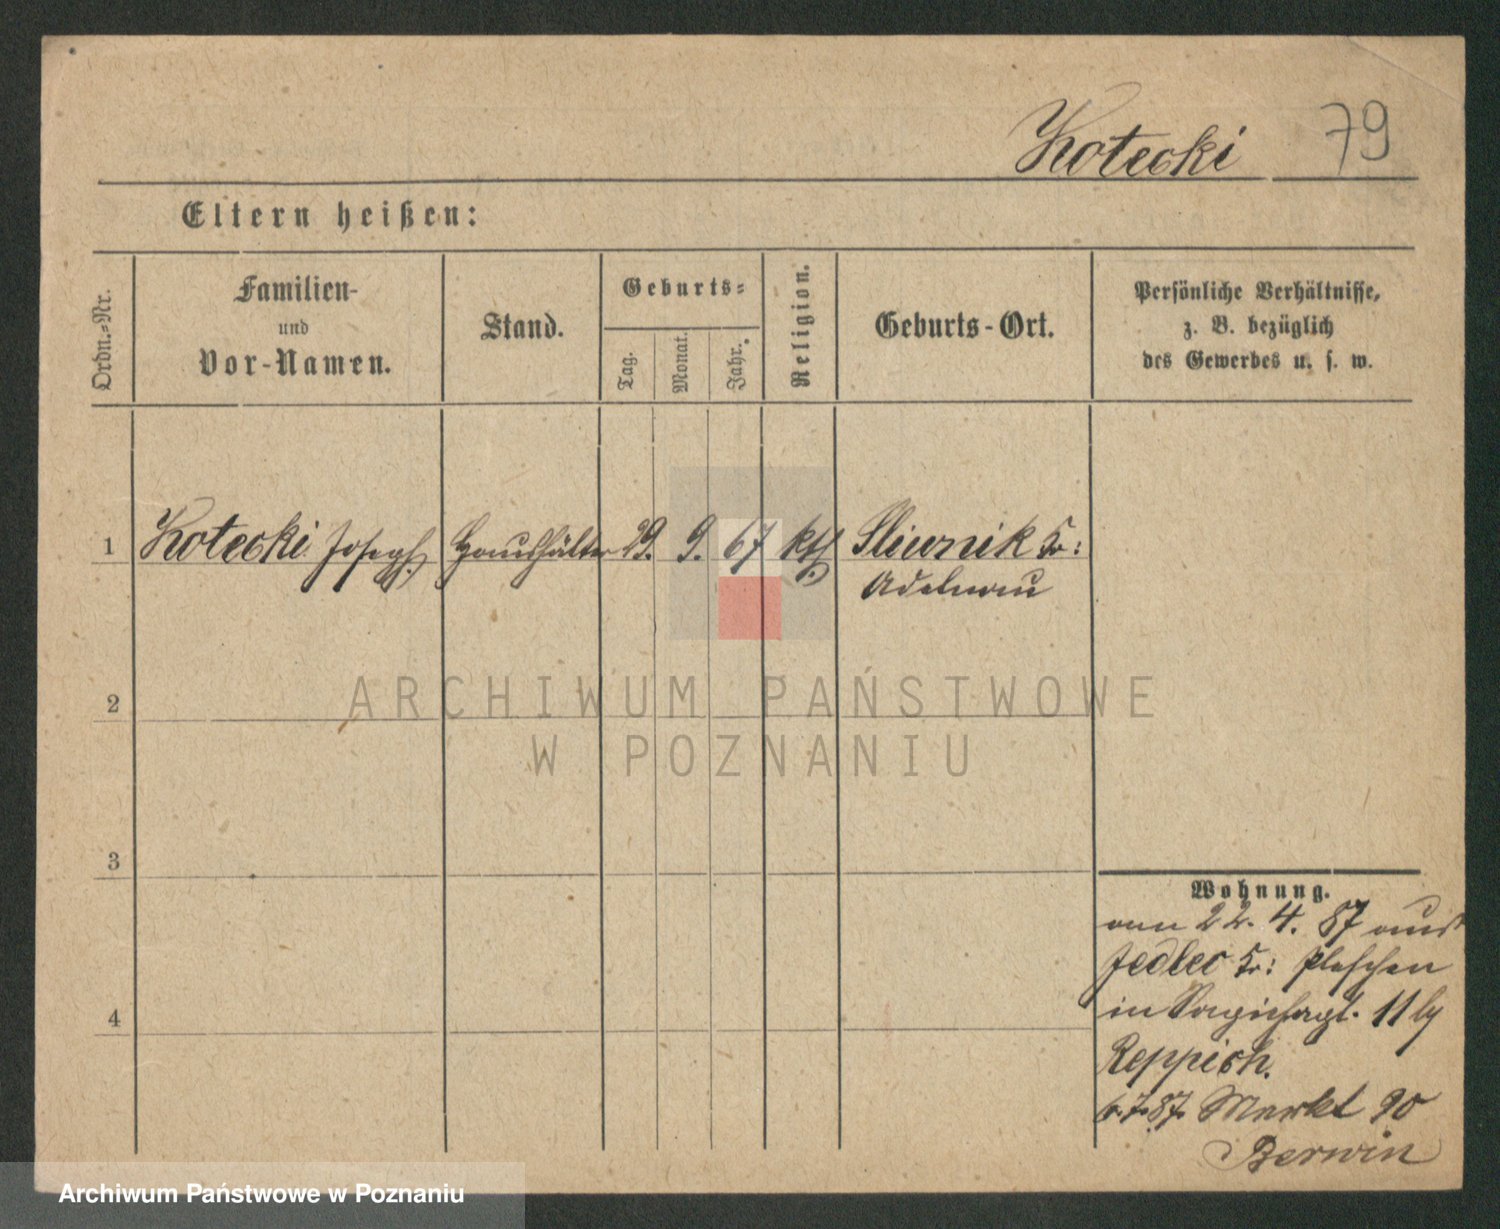 Kotecki 79
Eltern heißen:
Ordn.-Nr.
Familien-
und
Vor-Namen.
Stand.
Geburts-
Tag.
Monat.
Jahr.
Religion.
Geburts-Ort.
Persönliche Verhältnisse,
z. B. bezüglich
des Gewerbes u. s. w.
1 Kotecki Joseph Haushälter 29. 9. 67 kth. Sliwnik Kr:
Adelnau
2
3
4
Wohnung.
am 22. 4. 87 aus
Jedlec Kr: Pleschen
in 11 by
Reppich.
6.7.87. Markt 90
Berwin
ARCHIWUM PAŃSTWOWE
W POZNANIU
Archiwum Państwowe w Poznaniu